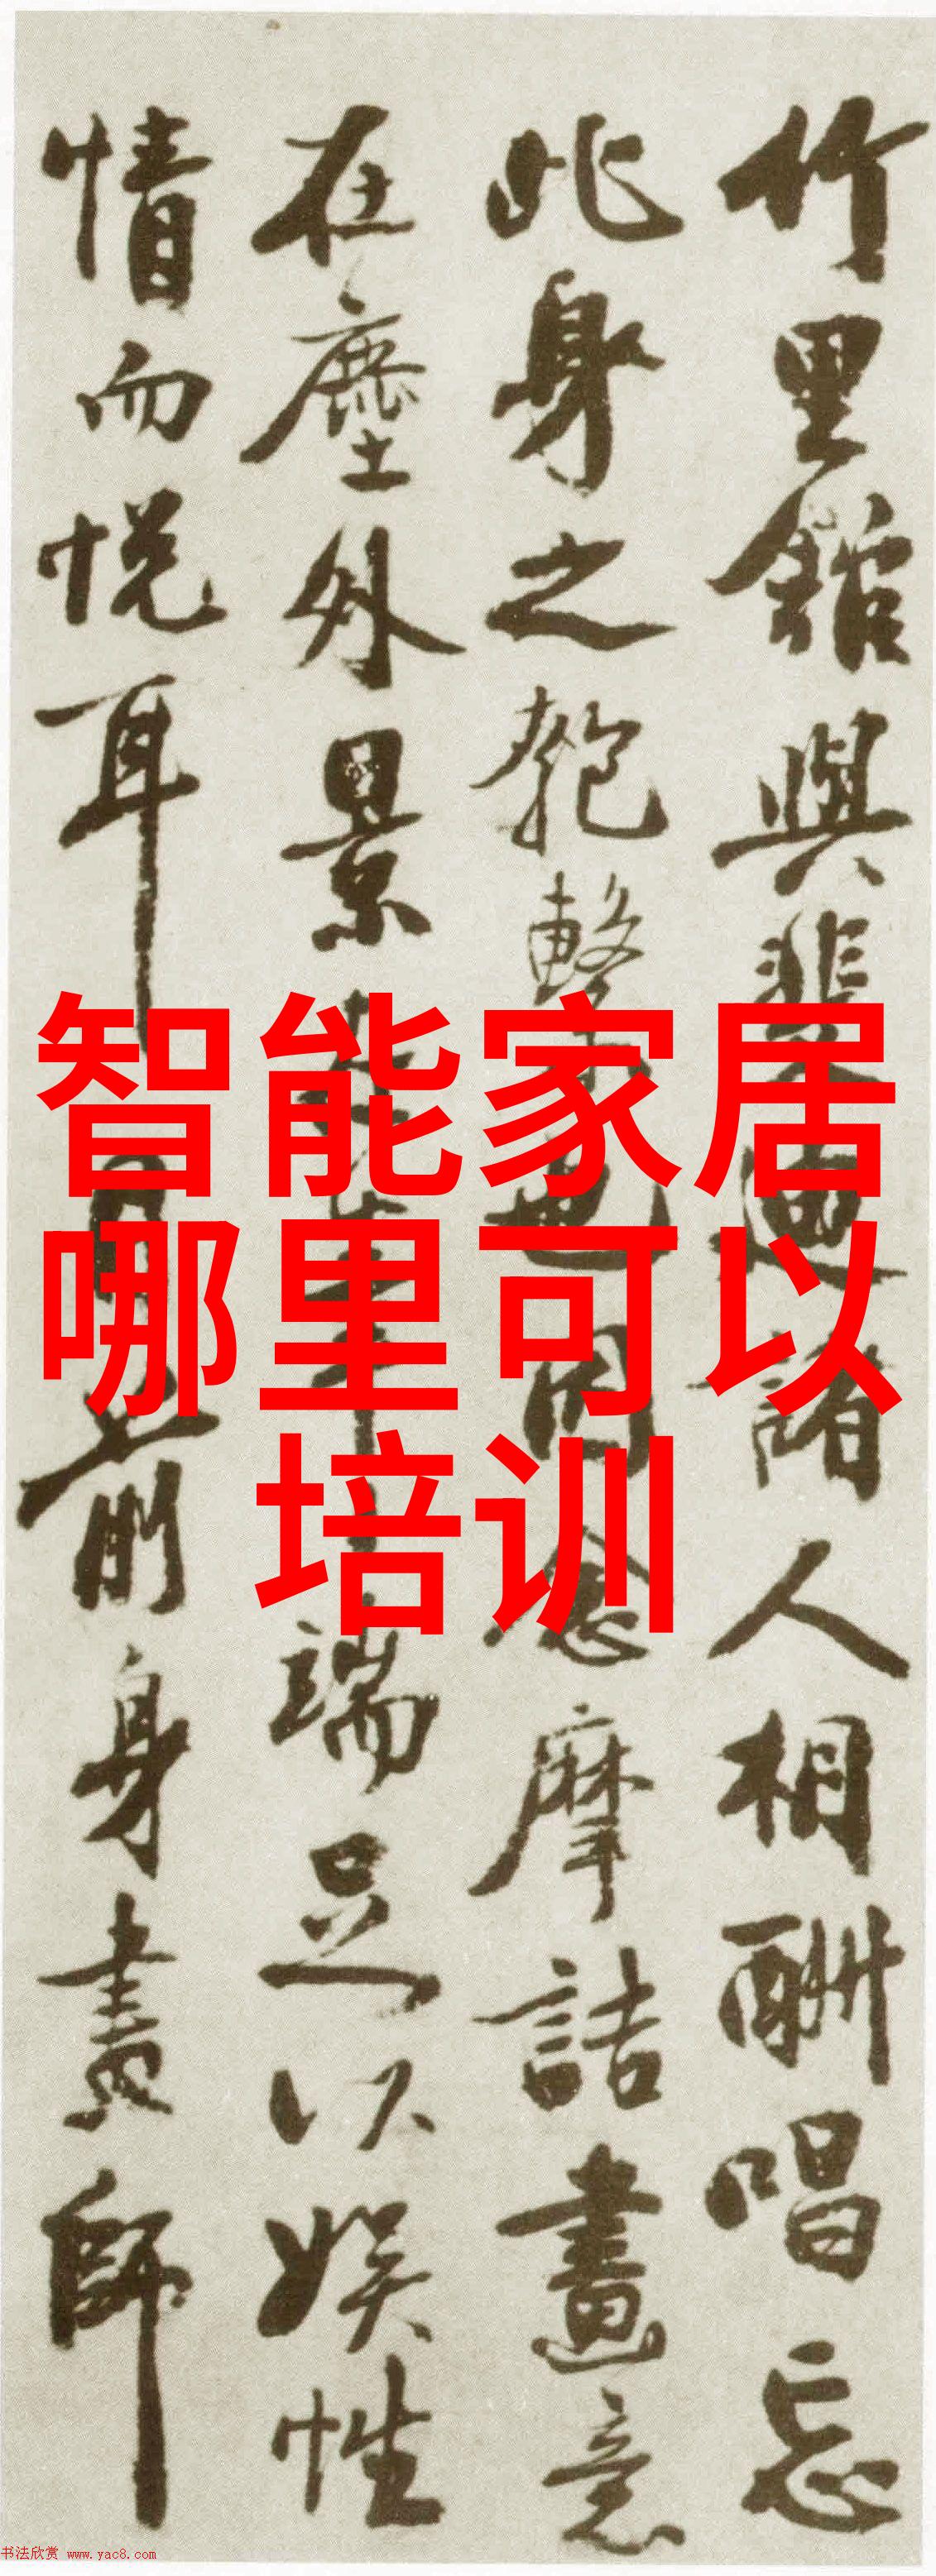 竹里館與裴迪諸人相酬唱忘
此身之匏繫也因念摩詰畫意
在塵外景端足以娱性
情而悦耳目前身畫師
智能家居
哪里可以
培训
书法欣赏 www.yac8.com